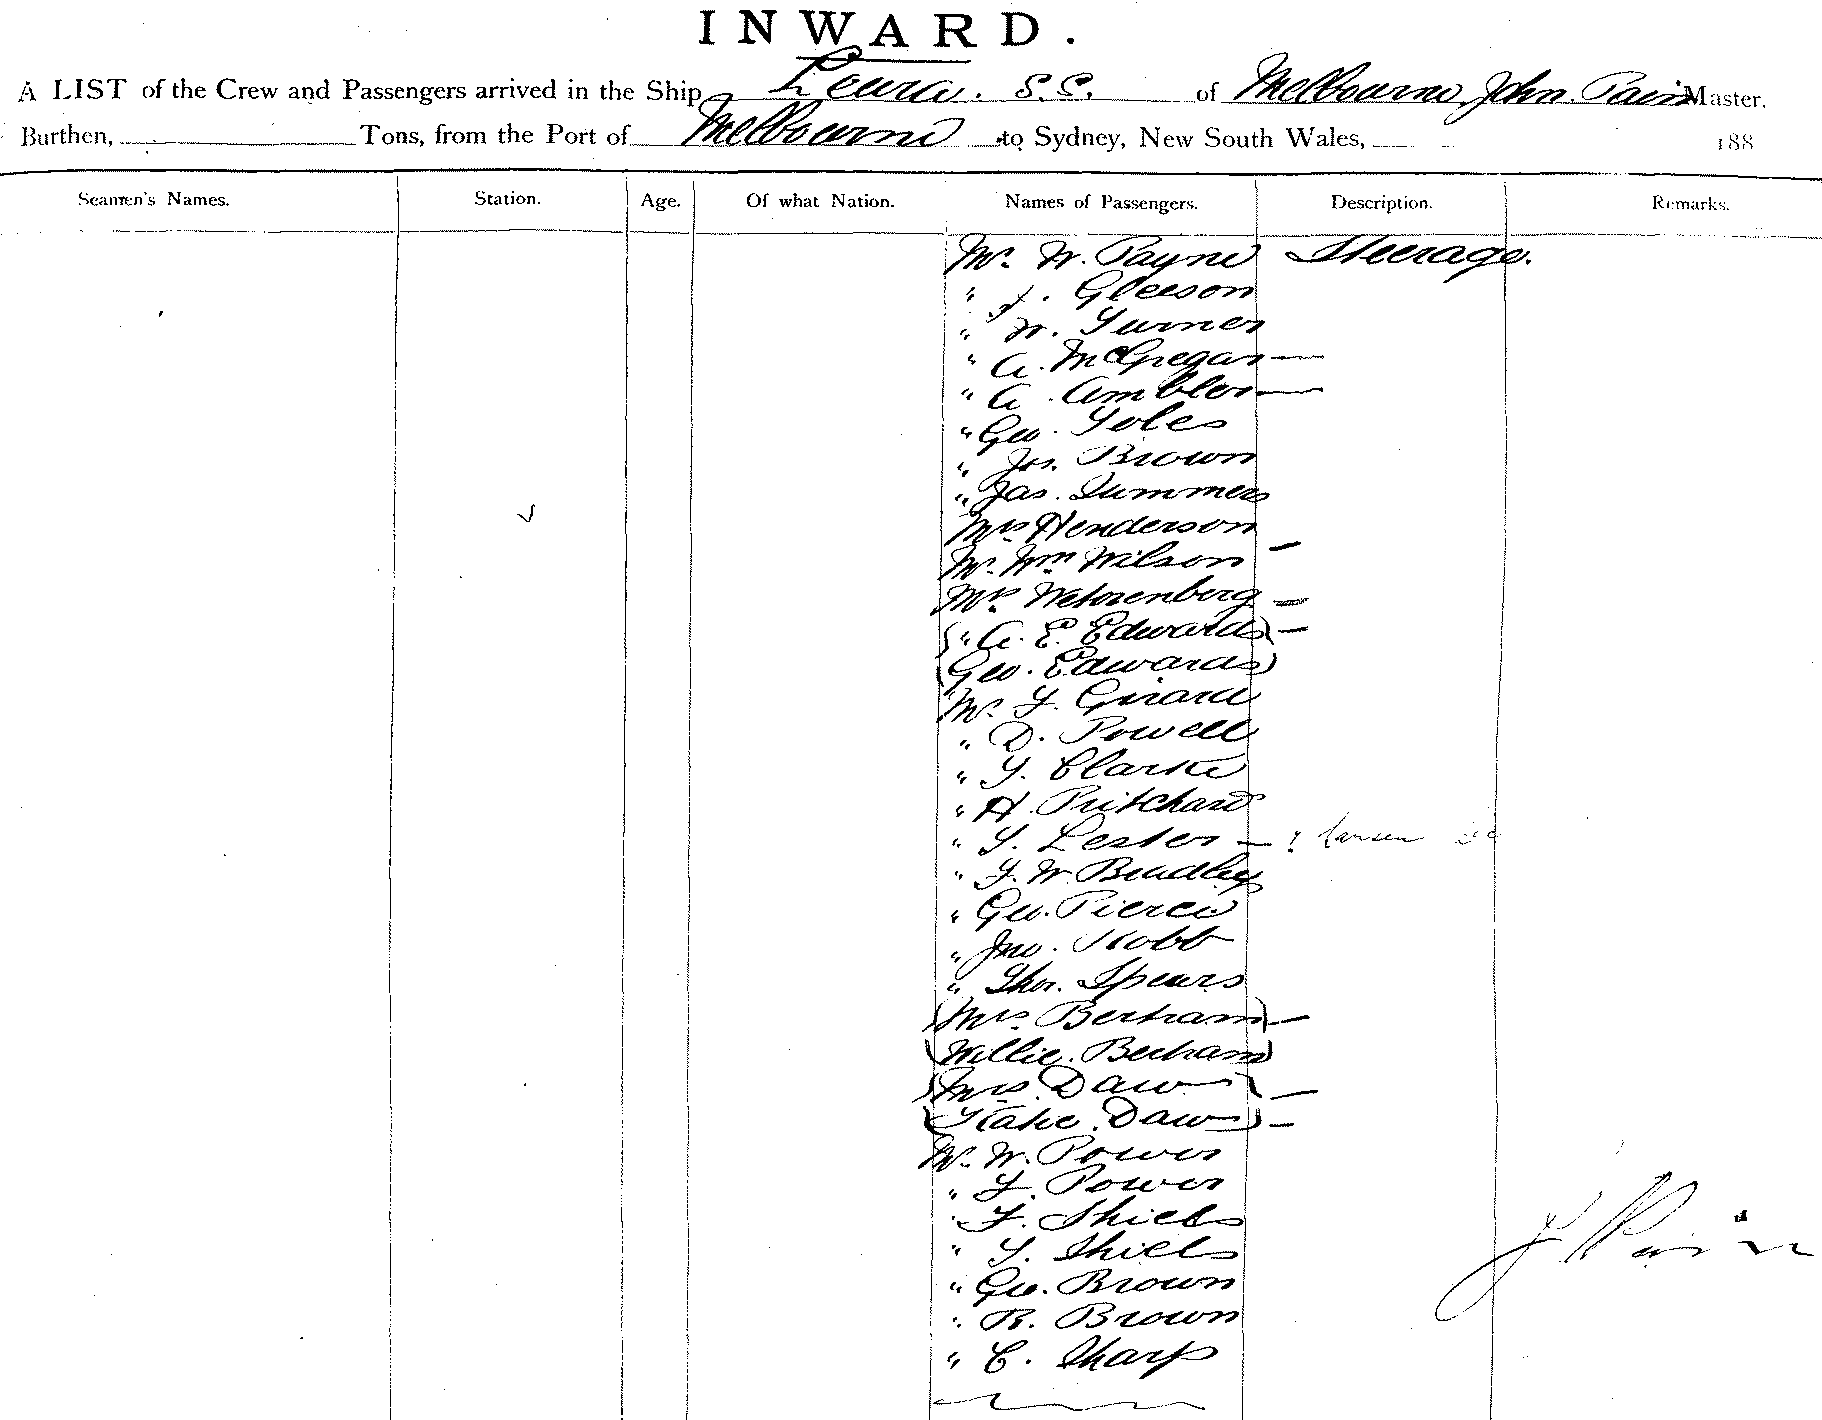 INWARD.
A LIST of the Crew and Passengers arrived in the Ship Leura. S.S. of Melbourne, John Pain Master.
Burthen, Tons, from the Port of Melbourne to Sydney, New South Wales, 188
Seamen's Names. Station. Age. Of what Nation. Names of Passengers. Description. Remarks.
Mr. W. Payne Steerage.
" J. Gleeson
" W. Turner
" A. McGregor
" A. Ambler
" Geo. Toles
" Jos. Brown
" Jas. Summers
Mrs Henderson
Mr. Wm Wilson
Mr.
" A. E. Edwards
Geo. Edwards
Mr. F. Girard
" D. Powell
" T. Clarke
" H. Pritchard
" T. Lester
" F. W. Bradley
" Geo. Pierce
" Jno.
" Thos. Spears
Mrs. Bertram
Willie. Bertram
Mrs. Daw
Katie. Daw
Mr. W. Power
" F. Power
" F. Shiels
" T. Shiels
" Geo. Brown
" R. Brown
" C. Sharp
J Pain